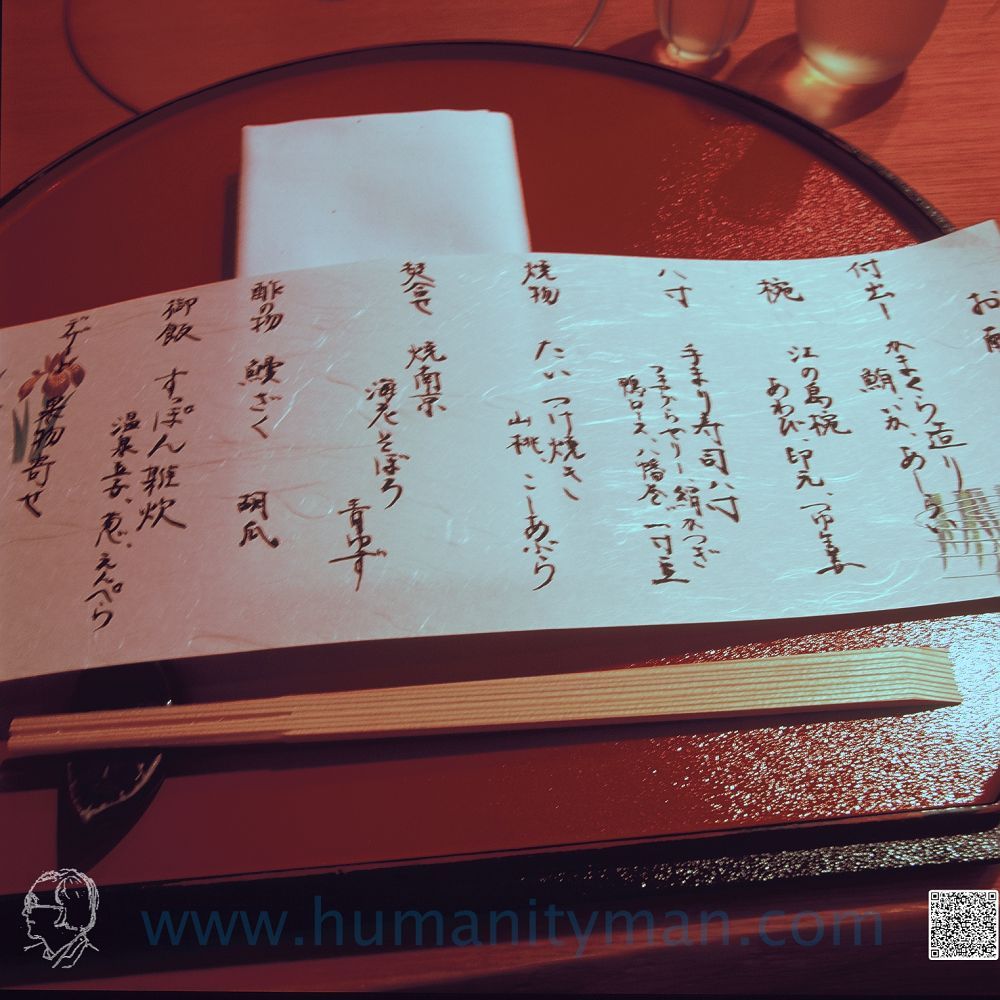 お
付出し
かまくら造り
鮪、いか、あしらい
椀
江の島椀
あわび、印元、つゆ生姜
八寸
手まり寿司八寸
鴨ロース、八幡巻、一寸豆
焼物
たい つけ焼き
山桃
焚合せ
焼南京
海老そぼろ
青ゆず
酢の物
鰻ざく
胡瓜
御飯
すっぽん雑炊
温泉玉子、葱、えんぺら
デザート
果物寄せ
www.humanityman.com